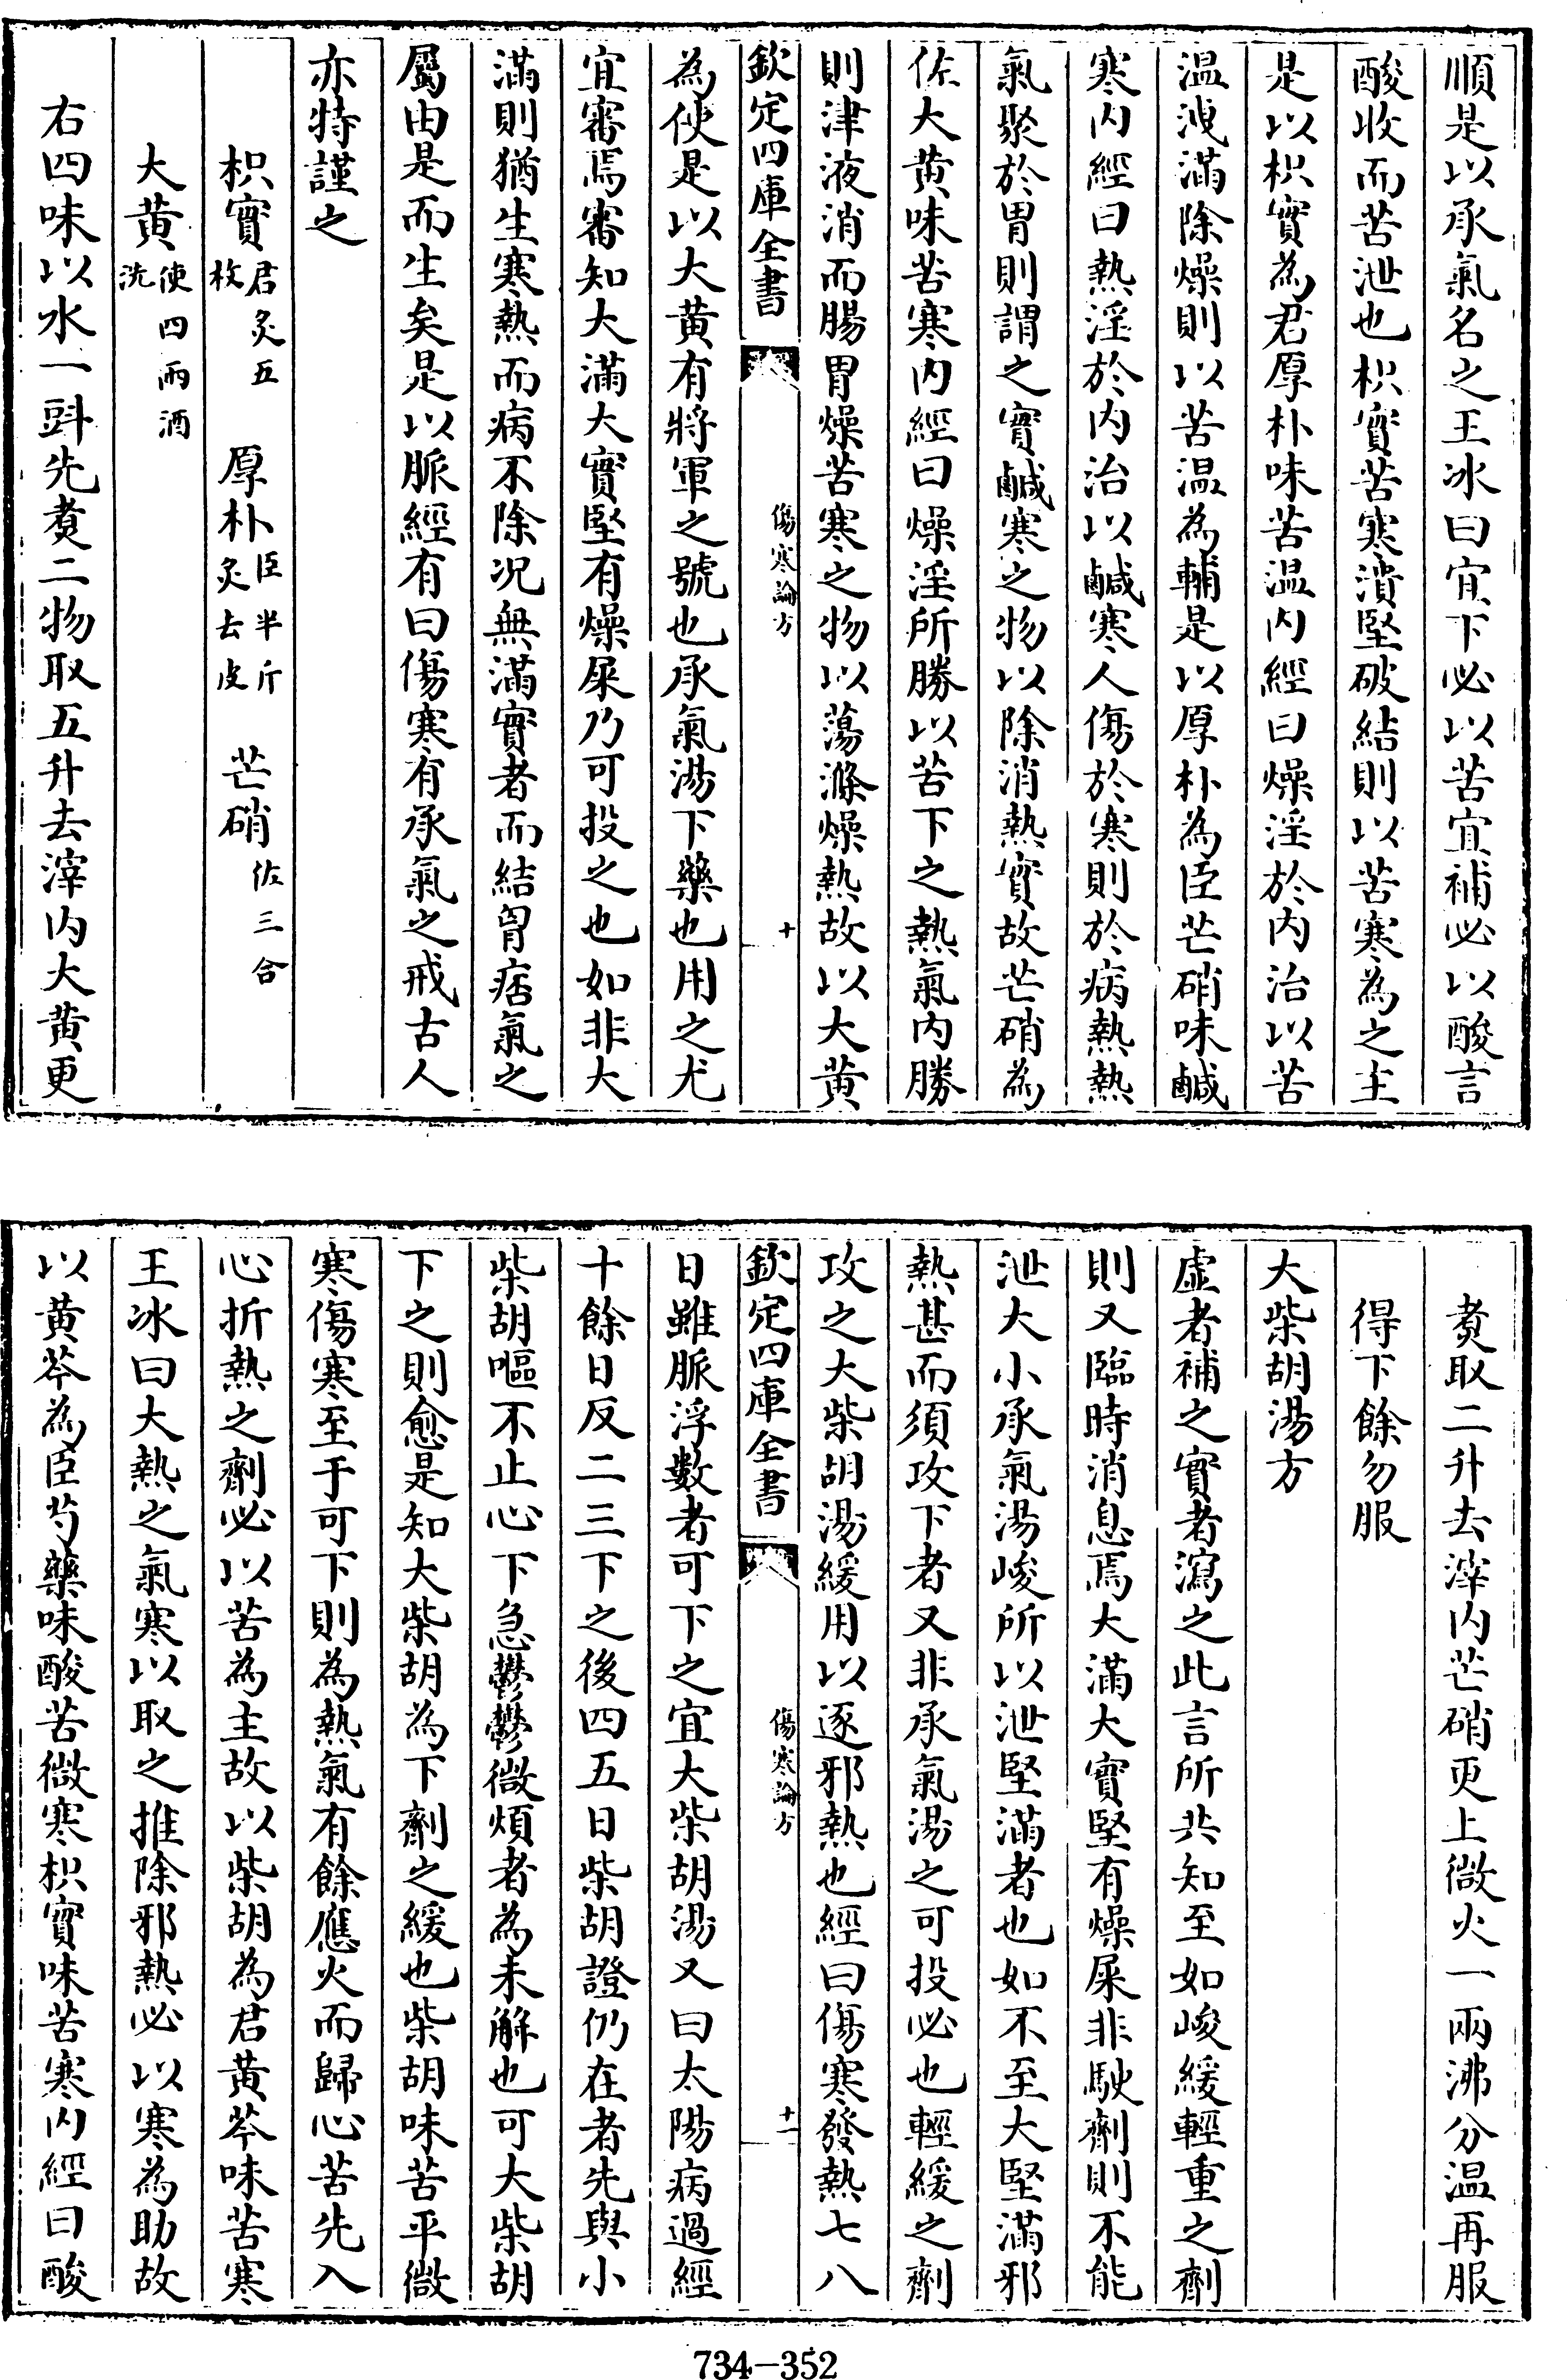 順是以承氣名之王冰曰宜下必以苦宜補必以酸言
酸收而苦泄也枳實苦寒潰堅破結則以苦寒為之主
是以枳實為君厚朴味苦温内經曰燥淫於内治以苦
温洩滿除燥則以苦温為輔是以厚朴為臣芒硝味鹹
寒内經曰熱淫於内治以鹹寒人傷於寒則於病熱熱
氣聚於胃則謂之實鹹寒之物以除消熱實故芒硝為
佐大黄味苦寒内經曰燥淫所勝以苦下之熱氣内勝
則津液消而腸胃燥苦寒之物以蕩滌燥熱故以大黄
欽定四庫全書
傷寒論方
十
為使是以大黄有將軍之號也承氣湯下藥也用之尤
宜審焉審知大滿大實堅有燥屎乃可投之也如非大
滿則猶生寒熱而病不除况無滿實者而結胷痞氣之
屬由是而生矣是以脈經有曰傷寒有承氣之戒古人
亦特謹之
枳實君炙五枚 厚朴臣半斤炙去皮 芒硝佐三合
大黄使四兩酒洗
右四味以水一㪷先煑二物取五升去滓内大黄更
煑取二升去滓内芒硝更上微火一兩沸分温再服
得下餘勿服
大柴胡湯方
虚者補之實者瀉之此言所共知至如峻緩輕重之劑
則又臨時消息焉大滿大實堅有燥屎非駛劑則不能
泄大小承氣湯峻所以泄堅滿者也如不至大堅滿邪
熱甚而須攻下者又非承氣湯之可投必也輕緩之劑
攻之大柴胡湯緩用以逐邪熱也經曰傷寒發熱七八
欽定四庫全書
傷寒論方
十一
日雖脈浮數者可下之宜大柴胡湯又曰太陽病過經
十餘日反二三下之後四五日柴胡證仍在者先與小
柴胡嘔不止心下急鬱鬱微煩者為未解也可大柴胡
下之則愈是知大柴胡為下劑之緩也柴胡味苦平微
寒傷寒至于可下則為熱氣有餘應火而歸心苦先入
心折熱之劑必以苦為主故以柴胡為君黄芩味苦寒
王冰曰大熱之氣寒以取之推除邪熱必以寒為助故
以黄芩為臣芍藥味酸苦微寒枳實味苦寒内經曰酸
734-352